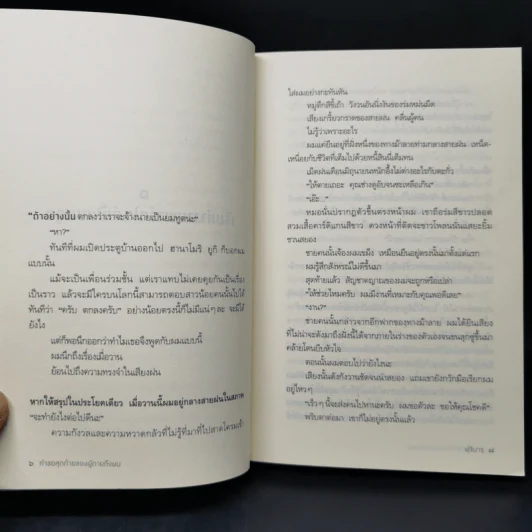 "ถ้าอย่างนั้น ตกลงว่าเราจะจ้างนายเป็นยมทูตนะ"
"หา?"
ทันทีที่ผมเปิดประตูบ้านออกไป ฮานาโมริ ยูกิ ก็บอกผม
แบบนั้น
แม้จะเป็นเพื่อนร่วมชั้น แต่เราแทบไม่เคยคุยกันเป็นเรื่อง
เป็นราว แล้วจะมีใครบนโลกนี้สามารถตอบสาวน้อยคนนั้นไปได้
ทันทีว่า "ครับ ตกลงครับ" อย่างน้อยตรงนี้ก็ไม่มีแน่ๆ จะมีได้
ยังไง
แต่ก็พอนึกออกว่าทำไมเธอจึงพูดกับผมแบบนี้
ผมนึกถึงเรื่องเมื่อวาน
ย้อนไปถึงความทรงจำในเสียงฝน
หากให้สรุปในประโยคเดียว เมื่อวานนี้ผมอยู่กลางสายฝนในสภาพ
"จะทำยังไงต่อไปดีนะ"
ความกังวลและความหวาดกลัวที่ไม่รู้ที่มาที่ไปสาดโครมเข้า
๖ คำขอสุดท้ายของผู้ตายที่
ใส่ผมอย่างกะทันหัน
หมู่ตึกสีขี้เถ้า วังวนอันนิ่งงันของร่มหม่นมืด
เสียงเกรี้ยวกราดของสายฝน คลื่นผู้คน
ไม่รู้ว่าเพราะอะไร
ผมแค่ยืนอยู่ที่ฝั่งหนึ่งของทางม้าลายท่ามกลางสายฝน เหนื่อย
เหนื่อยกับชีวิตที่เต็มไปด้วยหนี้สินนี่เต็มทน
เม็ดฝนเดือนมิถุนายนหนักอึ้งไม่ต่างอะไรกับตะกั่ว
"ให้ตายเถอะ คุณช่างดูอับจนซะเหลือเกิน"
"เอ๊ะ..."
หมอนั่นปรากฏตัวขึ้นตรงหน้าผม เขาถือร่มสีขาวปลอด
สวมเสื้อคาร์ดิแกนสีขาว ดวงหน้าที่ตัดจะขาวโพลนนั้นแสยะยิ้ม
ชวนสยอง
ชายคนนั้นจ้องผมเขม็ง เหมือนยืนอยู่ตรงนั้นมาตั้งแต่แรก
ผมรู้สึกสังหรณ์ไม่ดีขึ้นมา
สุดท้ายแล้ว สัญชาตญาณของผมจะถูกหรือเปล่า
"ให้ช่วยไหมครับ ผมมีงานที่เหมาะกับคุณพอดีเลย"
"งาน?"
ชายคนนั้นกล่าวจากอีกฟากของทางม้าลาย ผมได้ยินเสียง
ที่ไม่น่าจะดังมาถึงฝั่งนี้ได้จากภายในร่างของตัวเองจนขนลุกซู่ขึ้นมา
คล้ายโดนบีบหัวใจ
ตอนนั้นผมตอบไปว่ายังไงนะ
เสียงฟ้ายังคงดังกัมปนาท แถมเขายังกวักมือเรียกผม
อยู่ไหวๆ
"เร็วๆ นี้จะส่งคนไปหานะครับ ผมขอตัวละ ขอให้คุณโชคดี"
พริบตาต่อมา เขาก็ไม่อยู่ตรงนั้นแล้ว
๗